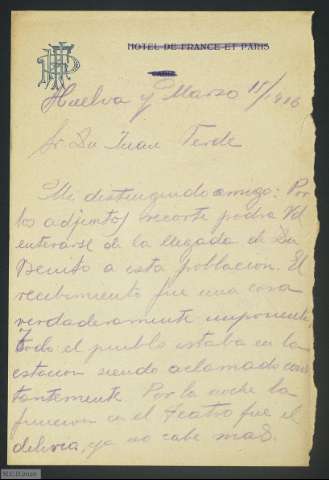 HOTEL DE FRANCE ET PARIS
CADIZ
Huelva y Marzo 15/1916
Sr Dn Juan
Mi distinguido amigo: Por
los adjuntos recorte podra Vd
enterarse de la llegada de Dn
Benito a esta poblacion. El
recibimiento fue una cosa
verdaderamente imponente,
todo el pueblo estaba en la
estacion siendo aclamado cons
tantemente. Por la noche la
funcion en el teatro fue el
delirio, ya no cabe mas.